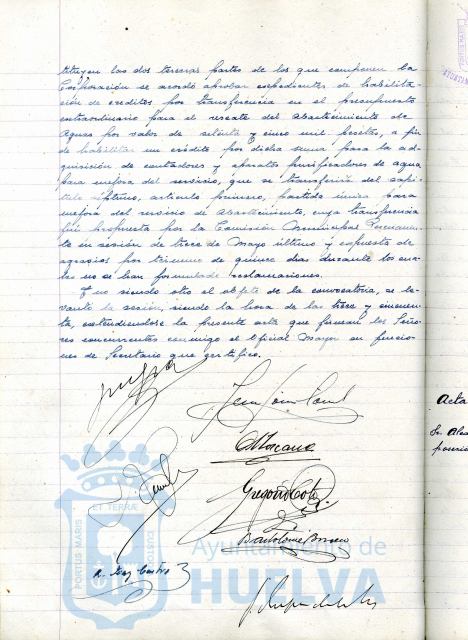 tituyen las dos terceras partes de los que componen la
Corporación se acordó aprobar expedientes de habilita-
ción de creditos por transferencia en el presupuesto
extraordinario para el rescate del abastecimiento de
aguas por valor de setenta y cinco mil pesetas, a fin
de habilitar un crédito por dicha suma para la ad-
quisición de contadores y aparatos purificadores de agua
para mejora del servicio, que se transferirá del capi-
tulo séptimo, articulo primero, partida unica para
mejora del servicio de abastecimiento, cuya transferencia
fué propuesta por la Comisión Municipal Permanen-
te en sesión de trece de Mayo último y expuesta de
agravios por termino de quince dias durante los cua-
les no se han formulado reclamaciones.
Y no siendo otro el objeto de la convocatoria, se le-
vantó la sesión, siendo la hora de las trece y cincuen-
ta, extendiendose la presente acta que firman los Seño-
res concurrentes conmigo el Oficial Mayor en funcio-
nes de Secretario que certifico.
Gregorio
Bartolomé
Ayuntamiento de
HUELVA
PORTUS MARIS
ET TERRAE
CUSTODIA
Acta